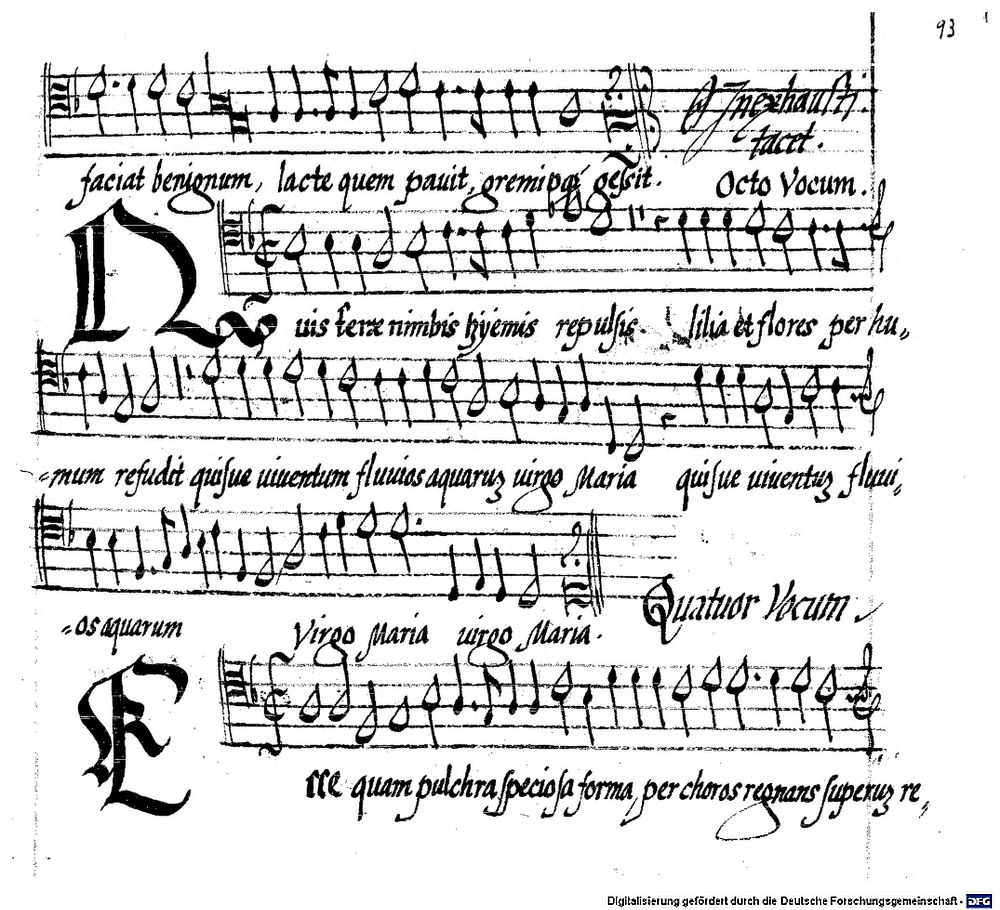 93
Inexhausti
tacet.
faciat benignum, lacte quem pavit, gremioqȝ gessit. Octo Vocum.
Quis terræ nimbis hyemis repulsis. lilia et flores per hu„
„mum refudit quisue uiuentum fluvios aquaruȝ uirgo Maria quisue uiuentuȝ fluui„
„os aquarum Virgo Maria uirgo Maria.
Quatuor Vocum
Esse quam pulchra speciosa forma, per choros regnans superuȝ re„
Digitalisierung gefördert durch die Deutsche Forschungsgemeinschaft - DFG